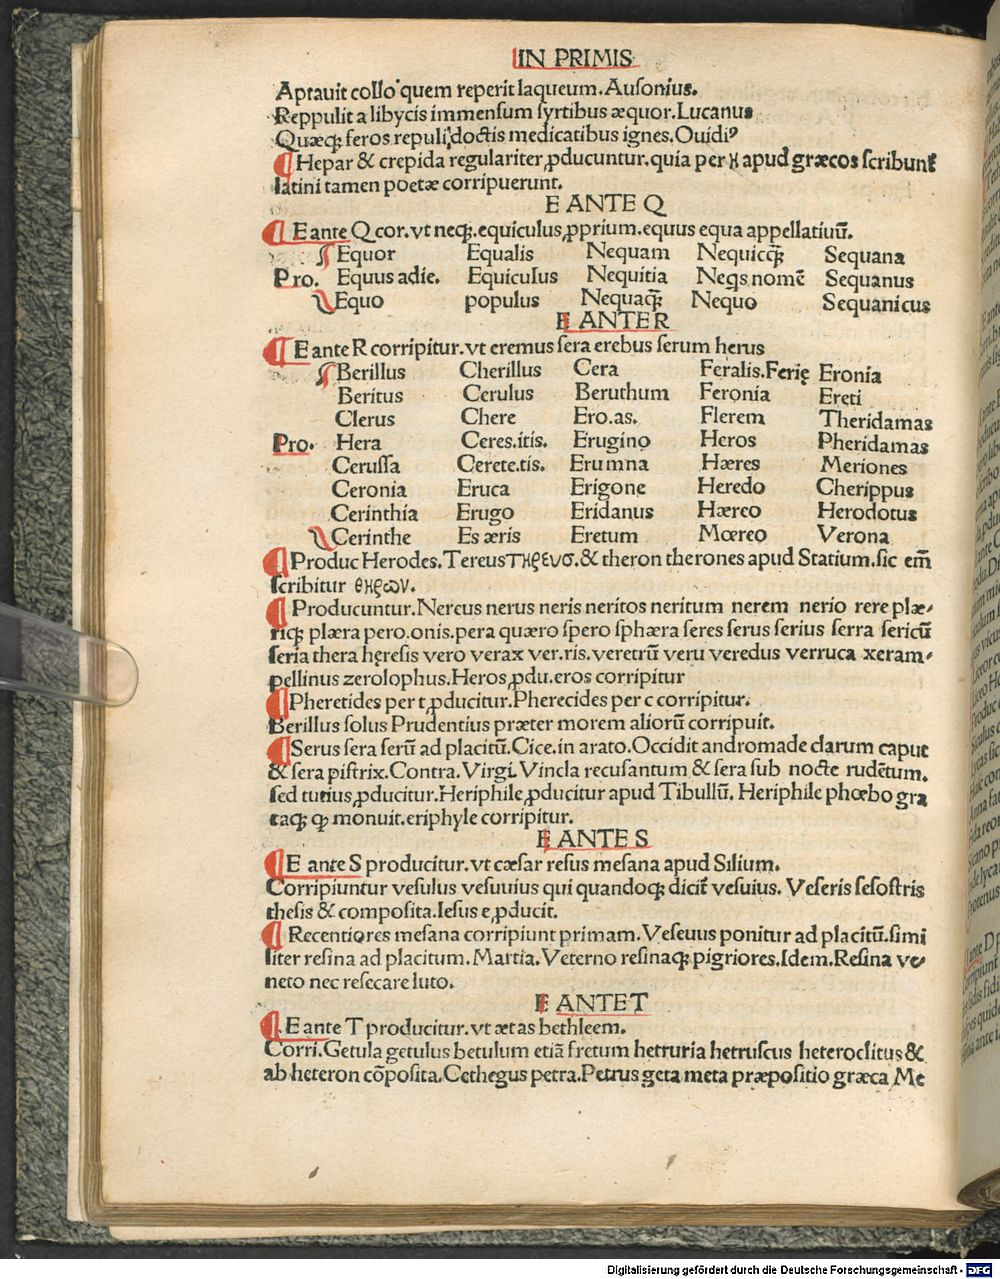 IN PRIMIS
Aptauit collo quem reperit laqueum.Auſonius.
Reppulit a libycis immenſum ſyrtibus æquor.Lucanus
Quæqꝫ feros repulit doctis medicatibus ignes.Ouidiꝰ
¶ Hepar & crepida regulariter ꝓducuntur.quia per η apud græcos ſcribunt᷑
latini tamen poetæ corripuerunt.
E ANTE Q
¶ E ante Q cor.vt neqꝫ.equiculus ꝓprium.equus equa appellatiuū.
Equor Equalis Nequam Nequicqꝫ Sequana
Pro. Equus adie. Equiculus Nequitia Neqs nomē Sequanus
Equo populus Nequaqꝫ Nequo Sequanicus
E ANTE R
¶ E ante R corripitur.vt eremus ſera erebus ſerum herus
Berillus Cherillus Cera Feralis.Ferię Eronia
Beritus Cerulus Beruthum Feronia Ereti
Clerus Chere Ero.as. Flerem Theridamas
Pro. Hera Ceres.itis. Erugino Heros Pheridamas
Ceruſſa Cerete.tis. Erumna Hæres Meriones
Ceronia Eruca Erigone Heredo Cherippus
Cerinthia Erugo Eridanus Hæreo Herodotus
Cerinthe Es æris Eretum Mœreo Verona
¶ Produc Herodes.Tereus τηρευσ.& theron therones apud Statium.ſic em̄
ſcribitur θηρων.
¶ Producuntur.Nereus nerus neris neritos neritum nerem nerio rere plæ⸗
riqꝫ plæra pero.onis.pera quæro ſpero ſphæra ſeres ſerus ſerius ſerra ſericū
ſeria thera hęreſis vero verax ver.ris.veretrū veru veredus verruca xeram⸗
pellinus zerolophus.Heros ꝓdu.eros corripitur
¶ Pheretides per t ꝓducitur.Pherecides per c corripitur.
Berillus ſolus Prudentius præter morem aliorū corripuit.
¶ Serus ſera ſerū ad placitū.Cice.in arato.Occidit andromade clarum caput
& ſera piſtrix.Contra.Virgi.Vincla recuſantum & ſera ſub nocte rudētum.
ſed tutius ꝓducitur.Heriphile ꝓducitur apud Tibullū. Heriphile phœbo gra
taqꝫ ꝙ monuit.eriphyle corripitur.
E ANTE S
¶ E ante S producitur.vt cæſar reſus meſana apud Silium.
Corripiuntur veſulus veſuuius qui quandoqꝫ dicit᷑ veſuius. Veſeris ſeſoſtris
theſis & compoſita.Ieſus e ꝓducit.
¶ Recentiores meſana corripiunt primam.Veſeuus ponitur ad placitū.ſimi
liter reſina ad placitum. Martia.Veterno reſinaqꝫ pigriores.Idem.Reſina ve⸗
neto nec reſecare luto.
E ANTE T
¶ E ante T producitur.vt ætas bethleem.
Corri.Getula getulus betulum etiā fretum hetruria hetruſcus heteroclitus &
ab heteron cōpoſita.Cethegus petra.Petrus geta meta præpoſitio græca Me
Digitalisierung gefördert durch die Deutsche Forschungsgemeinschaft - DFG